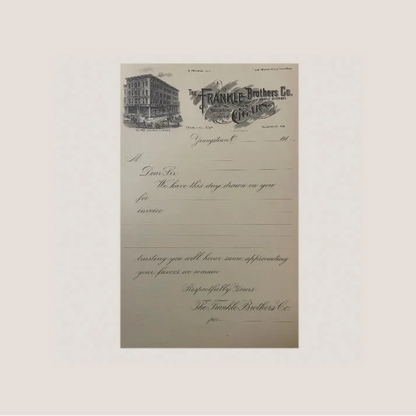 The FRANKLE Brothers Co.
CIGARS
Youngstown, O. 191
M
Dear Sir:
We have this day drawn on you
for
invoice
trusting you will honor same, appreciating
your favors we remain
Respectfully Yours
The Frankle Brothers Co.
per